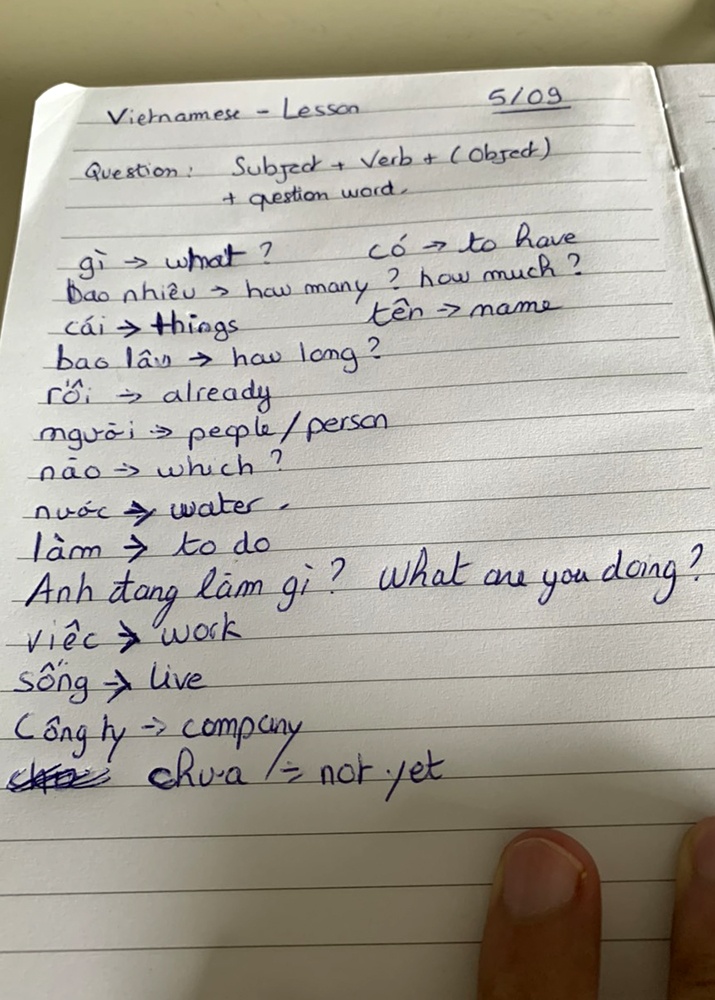 Vietnamese - Lesson 5/09
Question: Subject + Verb + (Object)
+ question word.
gì → what? có → to have
bao nhiêu → how many? how much?
cái → things tên → name
bao lâu → how long?
rồi → already
người → people/person
nào → which?
nước → water.
làm → to do
Anh đang làm gì? What are you doing?
việc → work
sống → live
Công ty → company
chưa /= not yet